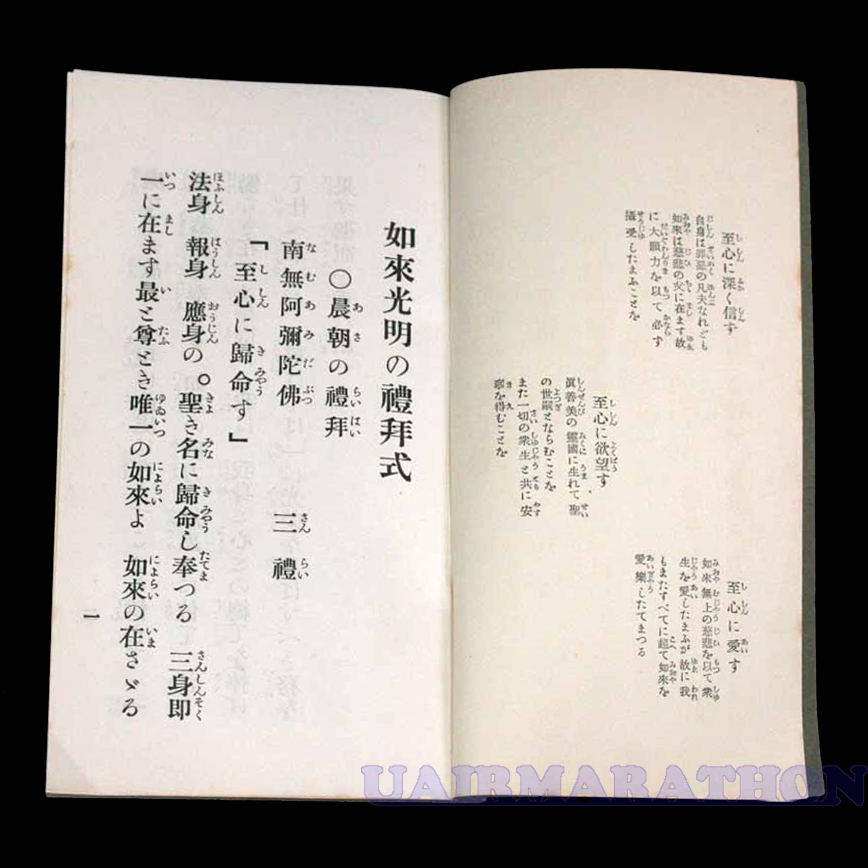 至心に深く信す
自身は罪惡の凡夫なれども
如來は慈悲の父に在ます故
に大願力を以て必す
攝受したまふことを
至心に欲望す
眞善美の靈國に生れて聖
の世嗣とならむことを
また一切の衆生と共に安
寧を得むことを
至心に愛す
如來無上の慈悲を以て衆
生を愛したまふが故に我
もまたすべてに超て如來を
愛樂したてまつる
如來光明の禮拜式
〇晨朝の禮拜
南無阿彌陀佛 三禮
「至心に歸命す」
法身 報身 應身の。聖き名に歸命し奉つる 三身即
一に在ます最と尊とき唯一の如來よ 如來の在さゞる
一
UAIRMARATHON